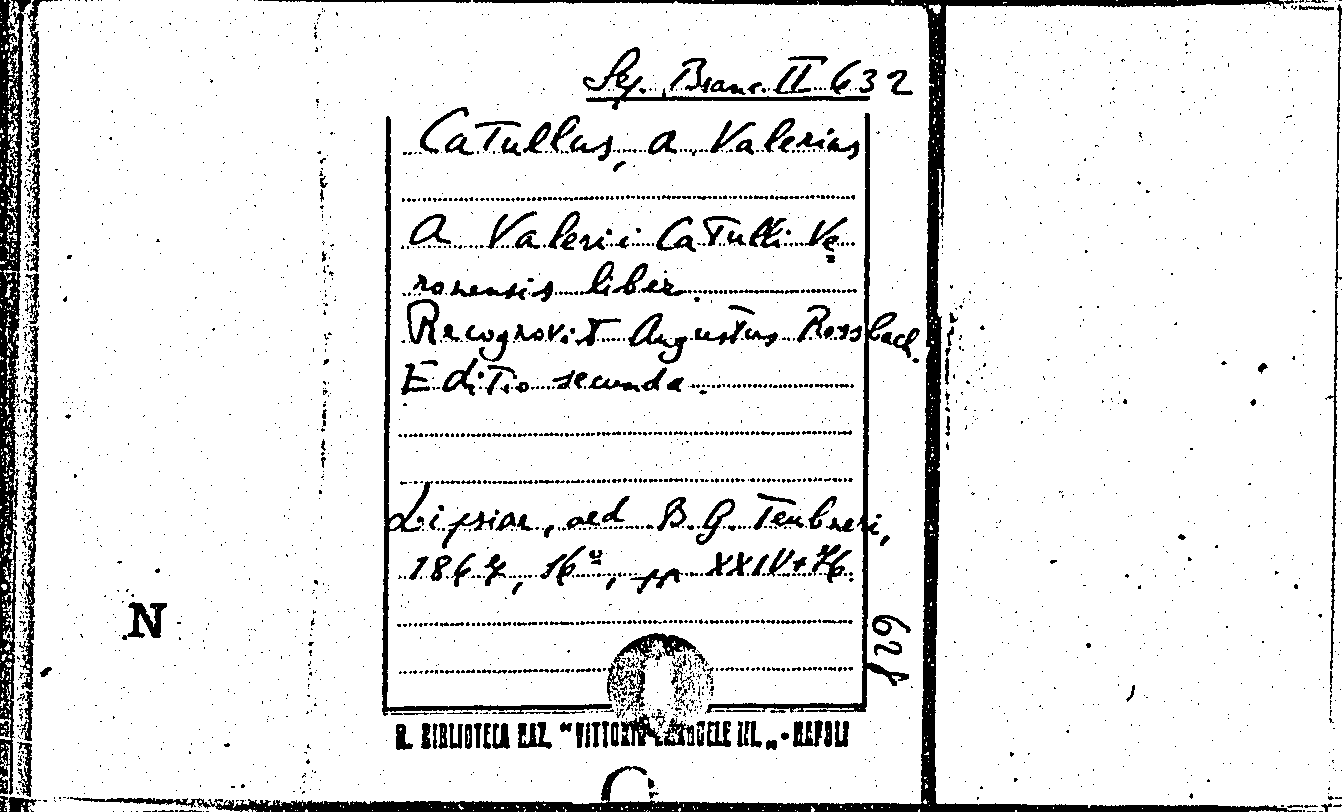 Sez. Branc. II 632
Catullus, a. Valerius
a Valerii Catulli Ve
ronensis liber.
Recognovit Augustus Rossbach.
Editio secunda.
Lipsiae, aed. B. G. Teubneri,
1867, 16º, pp XXIV+76.
129
N
R. BIBLIOTECA NAZ. "VITTORIO EMANUELE III. „ - NAPOLI